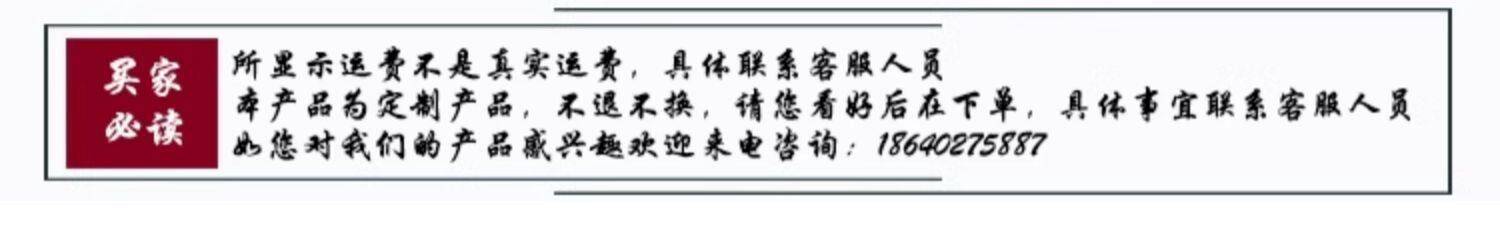 买家
必读
所显示运费不是真实运费，具体联系客服人员
本产品为定制产品，不退不换，请您看好后在下单，具体事宜联系客服人员
如您对我们的产品感兴趣欢迎来电咨询：18640275887